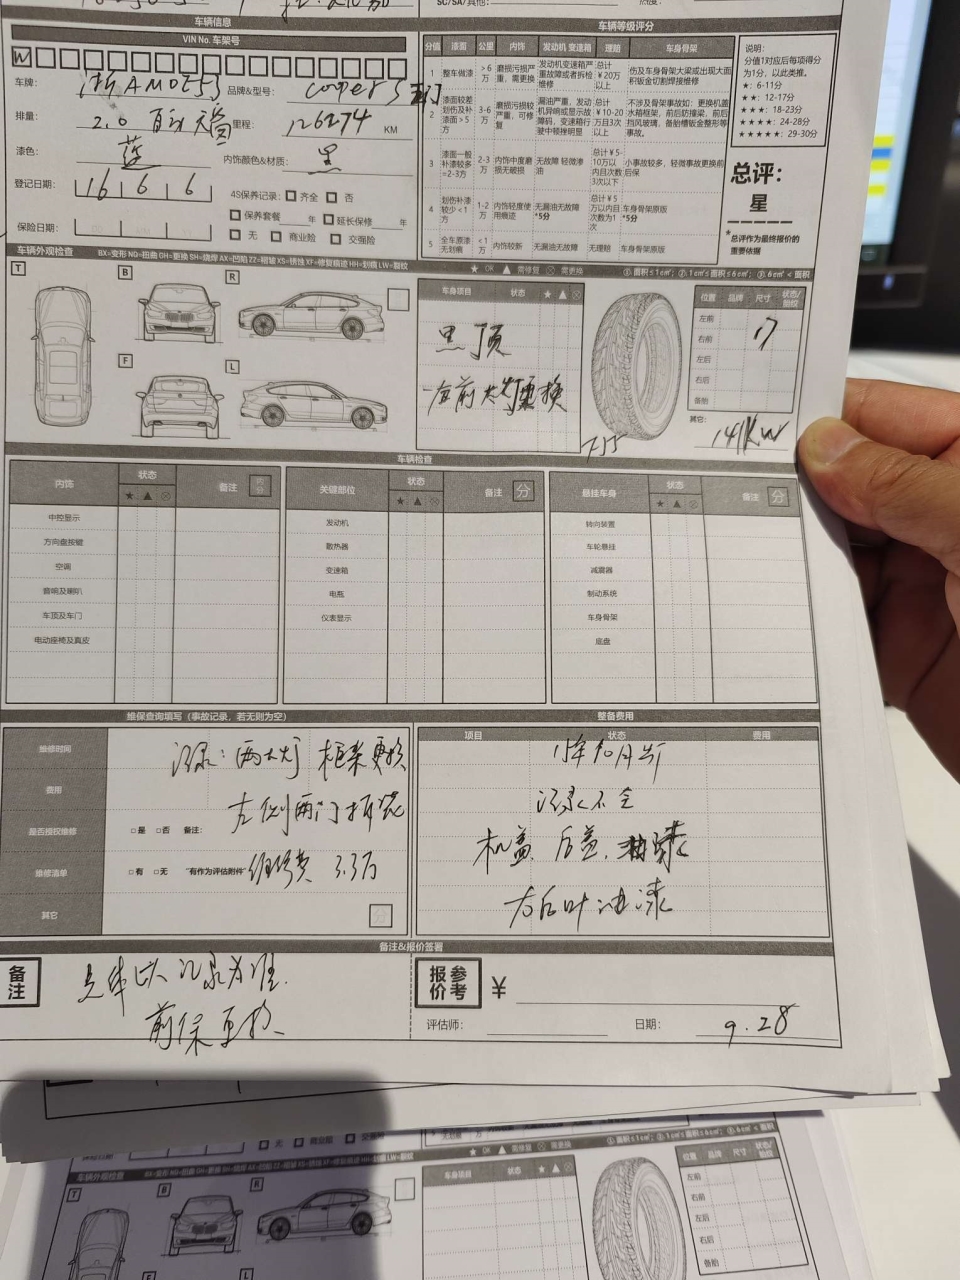 SC/SA/其他：
车辆信息
VIN No. 车架号
W
车牌：
浙AM0E53
品牌&型号：
cooper S 五门
排量：
2.0 自动 天窗
里程：
126274 KM
漆色：
蓝
内饰颜色&材质：
黑
登记日期：
16 6 6
4S保养记录： 齐全 否
保养套餐 年 延长保修 年
保险日期：
无 商业险 交强险
车辆等级评分
分值 漆面 公里 内饰 发动机 变速箱 理赔 车身骨架
1 整车做漆 >6万 磨损污损严重，需更换 发动机变速箱严重故障或者拆检维修 总计￥20万以上 伤及车身骨架大梁或出现大面积钣金切割焊接维修
2 漆面较差划伤及补漆面>5方 3-6万 磨损污损较严重，可修复 漏油严重，发动机异响或显示故障码，变速箱行驶中顿挫明显 总计￥10-20万目3次以上 不涉及骨架事故如：更换机盖水箱框架，前后防撞梁，前后挡风玻璃，备胎槽钣金整形等事故。
3 漆面一般补漆较多=2-3方 2-3万 内饰中度磨损无破损 无故障 轻微渗油 总计￥5-10万以内且次数3次以下 小事故较多，轻微事故更换前后保
4 划伤补漆较少<1方 1-2万 内饰轻度使用痕迹 无漏油无故障*5分 总计￥5万以内且次数为1次 车身骨架原版*5分
5 全车原漆无划痕 <1万 内饰较新 无漏油无故障 无理赔 车身骨架原版
说明：
分值1对应后每项得分为1分，以此类推。
★：6-11分
★★：12-17分
★★★：18-23分
★★★★：24-28分
★★★★★：29-30分
总评：
星
*总评作为最终报价的重要依据
车辆外观检查 BX=变形 NQ=扭曲 GH=更换 SH=烧焊 AX=凹陷 ZZ=褶皱 XS=锈蚀 XF=修复痕迹 HH=划痕 LW=裂纹 ★ OK ▲ 需修复 ⊗ 需更换 ①.面积≤1c㎡；②.1c㎡≤面积≤6c㎡；③.6c㎡<面积
T B R
F L
车身项目 状态 ★ ▲ ⊗
黑顶
左前大灯更换
位置 品牌 尺寸 状态/胎纹
左前
右前 17
左后
右后
备胎
其它：
141KW
F55
车辆检查
内饰 状态 备注 内分
★ ▲ ⊗
中控显示
方向盘按键
空调
音响及喇叭
车顶及车门
电动座椅及真皮
关键部位 状态 备注 分
★ ▲ ⊗
发动机
散热器
变速箱
电瓶
仪表显示
悬挂车身 状态 备注 分
★ ▲ ⊗
转向装置
车轮悬挂
减震器
制动系统
车身骨架
底盘
维保查询填写（事故记录，若无则为空）
维修时间
记录：两大灯 框架更换
费用
左侧两门拆装
是否授权维修
是 否 备注：
维修清单
有 无 "有作为评估附件"
维修费 3.3万
其它
分
整备费用
项目 状态 费用
15年10月出厂
记录不全
机盖、后盖、油漆
右后叶油漆
备注&报价签署
备注
具体以记录为准.
前保更换
报价参考 ￥
评估师：
日期： 9.28